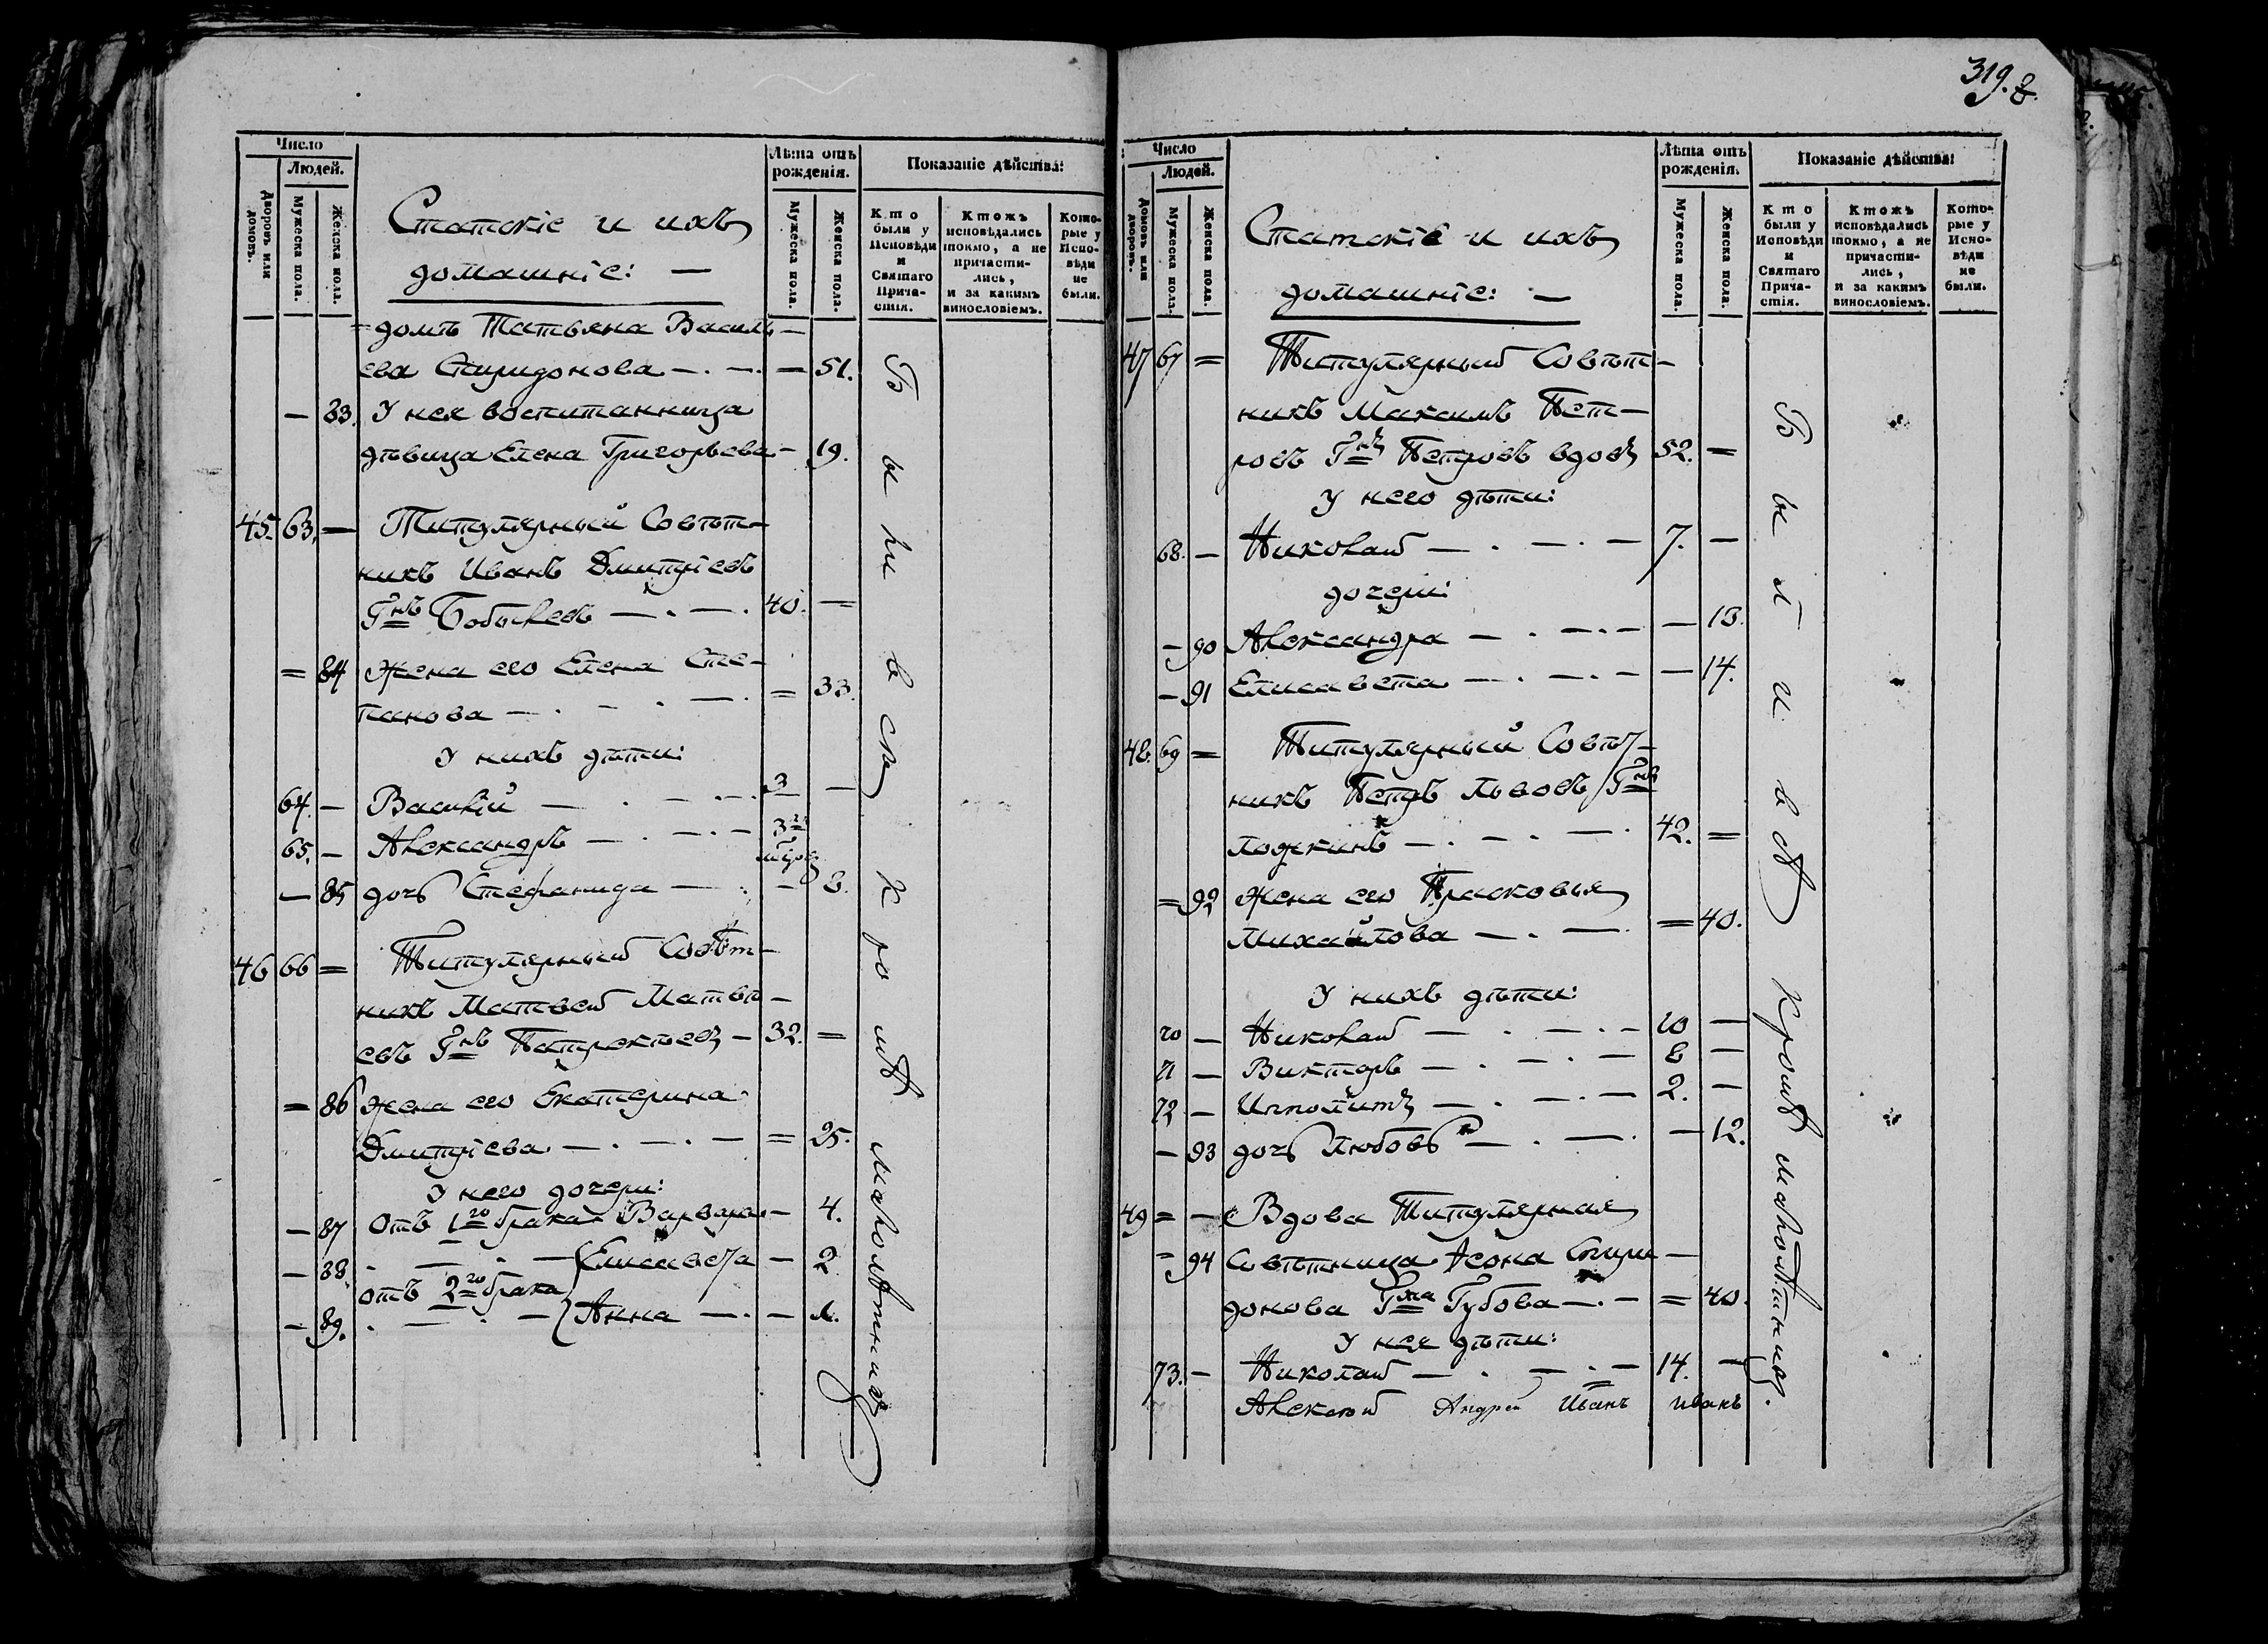 Число
Людей.
Дворовъ или домовъ.
Мужеска пола.
Женска пола.
Статскіе и ихъ
домашніе: —
Лѣта отъ рожденія.
Мужеска пола.
Женска пола.
Показаніе дѣйства:
Кто были у Исповѣди и Святаго Прича- стія.
Ктожъ исповѣдались токмо, а не причасти- лись, и за какимъ винословіемъ.
Кото- рые у Испо- вѣди не были.
=домъ Татьяна Василь—
ева Спиридонова —.—. — 51.
— 83. У нея воспитанница
дѣвица Елена Григорьева — 19.
45. 63. — Титулярный Совѣт-
никъ Иванъ Дмитріевъ
Г=нъ —.—. 40. =
= 84 Жена его Елена Сте-
панова —.—.—. = 33.
У нихъ дѣти:
64. — Василій —.—.— 3 —
65. — Александръ —.—.— 3
— 85 дочь Стефанида —.— 8.
46 66 = Титулярный Совѣт-
никъ Матвей Матвѣ-
евъ Г=нъ Патрекѣевъ — 32. =
= 86 жена его Екатерина
Дмитріева —.—.— = 25.
У него дочери:
— 87 Отъ 1=го брака Варвара — 4.
— 88. .—.—{Елисавета — 2
отъ 2=го брака
— 89. .—.—{Анна —.— 1.
Были всѣ кромѣ малолѣтнихъ
319.
Число
Людей.
Домовъ или дворовъ.
Мужеска пола.
Женска пола.
Статскіе и ихъ
домашніе: —
Лѣта отъ рожденія.
Мужеска пола.
Женска пола.
Показаніе дѣйства:
Кто были у Исповѣди и Святаго Прича- стія.
Ктожъ исповѣдались токмо, а не причасти- лись, и за какимъ винословіемъ.
Кото- рые у Испо- вѣди не были.
47 67 = Титулярный Совѣт-
никъ Максимъ Пет-
ровъ Г=нъ Петровъ вдовъ 52. =
У него дѣти:
68. — Николай —.—.— 7. —
дочери:
— 90 Александра —.—.— — 13.
— 91 Елисавета —.—.— — 14.
48. 69 = Титулярный Совѣт-
никъ Петръ Львовъ Г=нъ
Лодкинъ —.—.—. 42. =
= 92 Жена его Прасковья
Михайлова —.—. = 40.
У нихъ дѣти:
70 — Николай —.—.— 10 —
71 — Викторъ —.—.— 8 —
72 — Ипполитъ —.—.— 2. —
— 93 дочь Любовь —.—. — 12.
49 = — Вдова Титулярная
= 94 Совѣтница Спири-
донова Г=жа Губова —.— = 40.
У нея дѣти:
73. — Николай —.—.— 14. —
Алексѣй Андрей Иванъ иванъ
Были всѣ Кромѣ малолѣтнихъ.